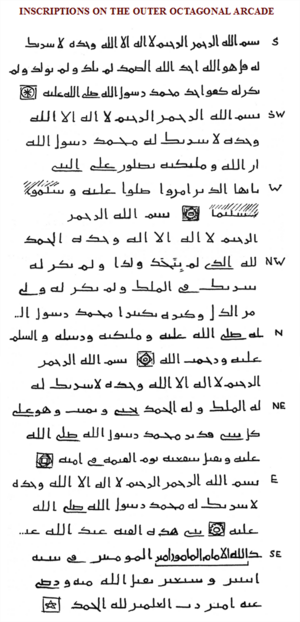 INSCRIPTIONS ON THE OUTER OCTAGONAL ARCADE
S بسم الله الرحمن الرحيم لا اله الا الله وحده لا شريك
له قل هو الله احد الله الصمد لم يلد ولم يولد ولم
يكن له كفوا احد محمد رسول الله صلى الله عليه
SW بسم الله الرحمن الرحيم لا اله الا الله
وحده لا شريك له محمد رسول الله
ان الله و مليكته يصلون على النبي
W يايها الذين امنوا صلوا عليه و سلموا
تسليما بسم الله الرحمن
الرحيم لا اله الا الله وحده الحمد
NW لله الذي لم يتخذ ولدا و لم يكن له
شريك في الملك و لم يكن له ولي
من الذل و كبره تكبيرا محمد رسول ا..
N لله صلى الله عليه و مليكته ورسله و السلم
عليه و رحمت الله بسم الله الرحمن
الرحيم لا اله الا الله وحده لا شريك له
NE له الملك و له الحمد يحيي و يميت و هو على
كل شي قدير محمد رسول الله صلى الله
عليه و تقبل شفعته يوم القيمة في امته
E بسم الله الرحمن الرحيم لا اله الا الله وحده
لا شريك له محمد رسول الله صلى الله
عليه بنى هذه القبة عبد الله عبـ..
SE د الله الامام المامون امير المومنين في سنة
اثنين و سبعين تقبل الله منه و رضي
عنه امين رب العلمين لله الحمد